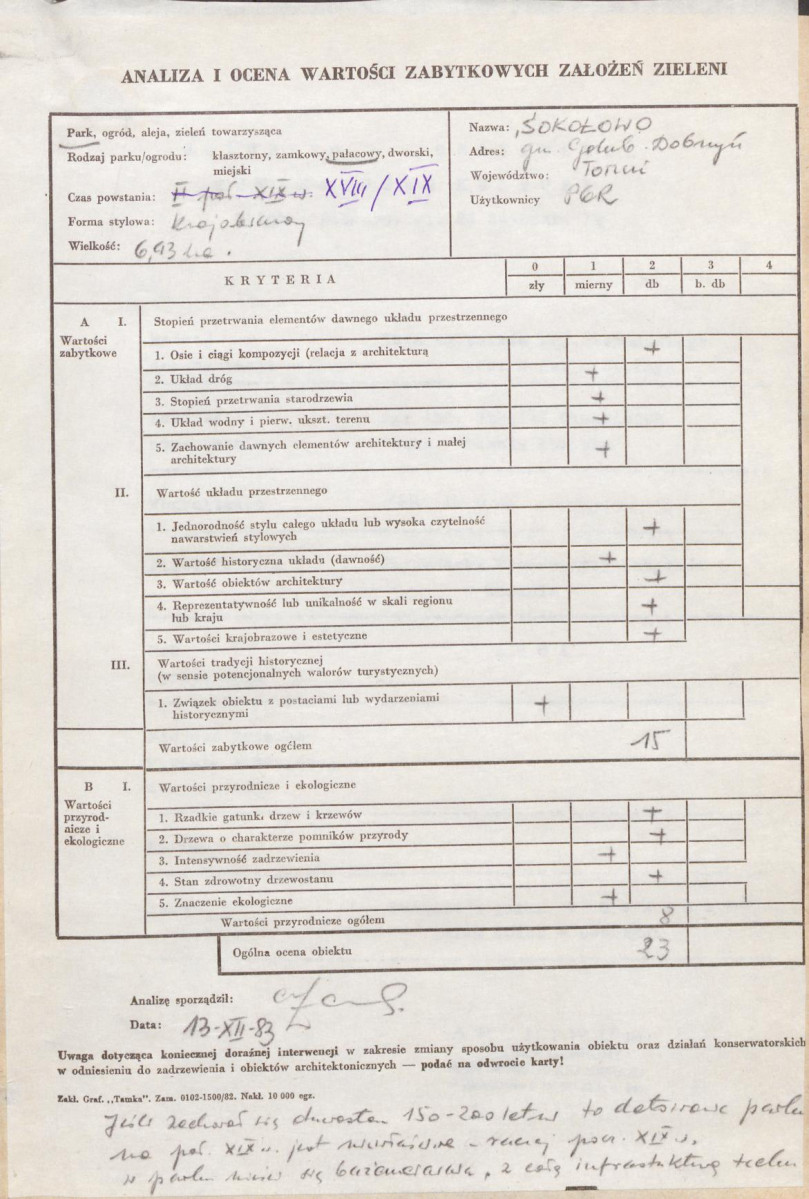 ANALIZA I OCENA WARTOŚCI ZABYTKOWYCH ZAŁOŻEŃ ZIELENI
Park, ogród, aleja, zieleń towarzysząca
Rodzaj parku/ogrodu: klasztorny, zamkowy, pałacowy, dworski,
miejski
Czas powstania: II poł. XIX w. XVIII/XIX
Forma stylowa: Krajobrazowy
Wielkość: 6,93 ha.
Nazwa: SOKOŁOWO
Adres: gm. Golub-Dobrzyń
Województwo: Toruń
Użytkownicy PGR
KRYTERIA
0 1 2 3 4
zły mierny db b. db
A I. Stopień przetrwania elementów dawnego układu przestrzennego
Wartości
zabytkowe
1. Osie i ciągi kompozycji (relacja z architekturą +
2. Układ dróg +
3. Stopień przetrwania starodrzewia +
4. Układ wodny i pierw. ukszt. terenu +
5. Zachowanie dawnych elementów architektury i małej
architektury +
II. Wartość układu przestrzennego
1. Jednorodność stylu całego układu lub wysoka czytelność
nawarstwień stylowych +
2. Wartość historyczna układu (dawność) +
3. Wartość obiektów architektury +
4. Reprezentatywność lub unikalność w skali regionu
lub kraju +
5. Wartości krajobrazowe i estetyczne +
III. Wartości tradycji historycznej
(w sensie potencjonalnych walorów turystycznych)
1. Związek obiektu z postaciami lub wydarzeniami
historycznymi +
Wartości zabytkowe ogółem 15
B I. Wartości przyrodnicze i ekologiczne
Wartości
przyrod-
nicze i
ekologiczne
1. Rzadkie gatunki drzew i krzewów +
2. Drzewa o charakterze pomników przyrody +
3. Intensywność zadrzewienia +
4. Stan zdrowotny drzewostanu +
5. Znaczenie ekologiczne +
Wartości przyrodnicze ogółem 8
Ogólna ocena obiektu 23
Analizę sporządził:
Data: 13-XII-83
Uwaga dotycząca koniecznej doraźnej interwencji w zakresie zmiany sposobu użytkowania obiektu oraz działań konserwatorskich
w odniesieniu do zadrzewienia i obiektów architektonicznych — podać na odwrocie karty!
Zakł. Graf. „Tamka". Zam. 0102-1500/82. Nakł. 10 000 egz.
Jeśli zachował się drzewostan 150-200 letni to datowanie parku
na poł. XIX w. jest niewłaściwe - raczej pocz. XIX w.
w parku mieści się bażanciarnia, z całą infrastukturą